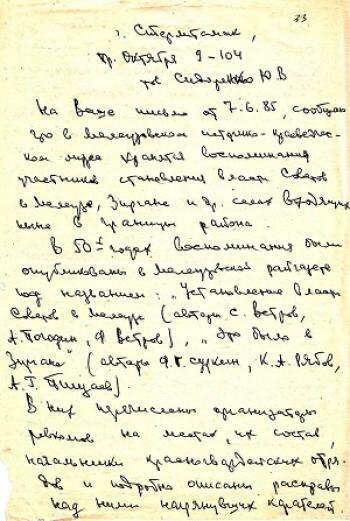 33
г. Стерлитамак,
пр. Октября 9-104
тов Сидоренко Ю В
На Ваше письмо от 7.6.85, сообщаю
что в Мелеузовском историко-краеведчес-
ком музее хранятся воспоминания
участников становления власти Советов
в Мелеузе, Зиргане и др. селах входящих
ныне в границы района.
В 50х годах воспоминания были
опубликованы в Мелеузовской райгазете
под названием: "Установление власти
Советов в Мелеузе (авторы С. Ветров,
А. Погодин, Ф Ветров), "Это было в
Зиргане" (авторы Ф.Г. Суркин, К.А. Рябов,
А.Г.
В них перечислены организаторы
ревкомов на местах, их состав,
начальники красногвардейских отря-
дов и подробно описаны расправы
над ними нагрянувших карателей.